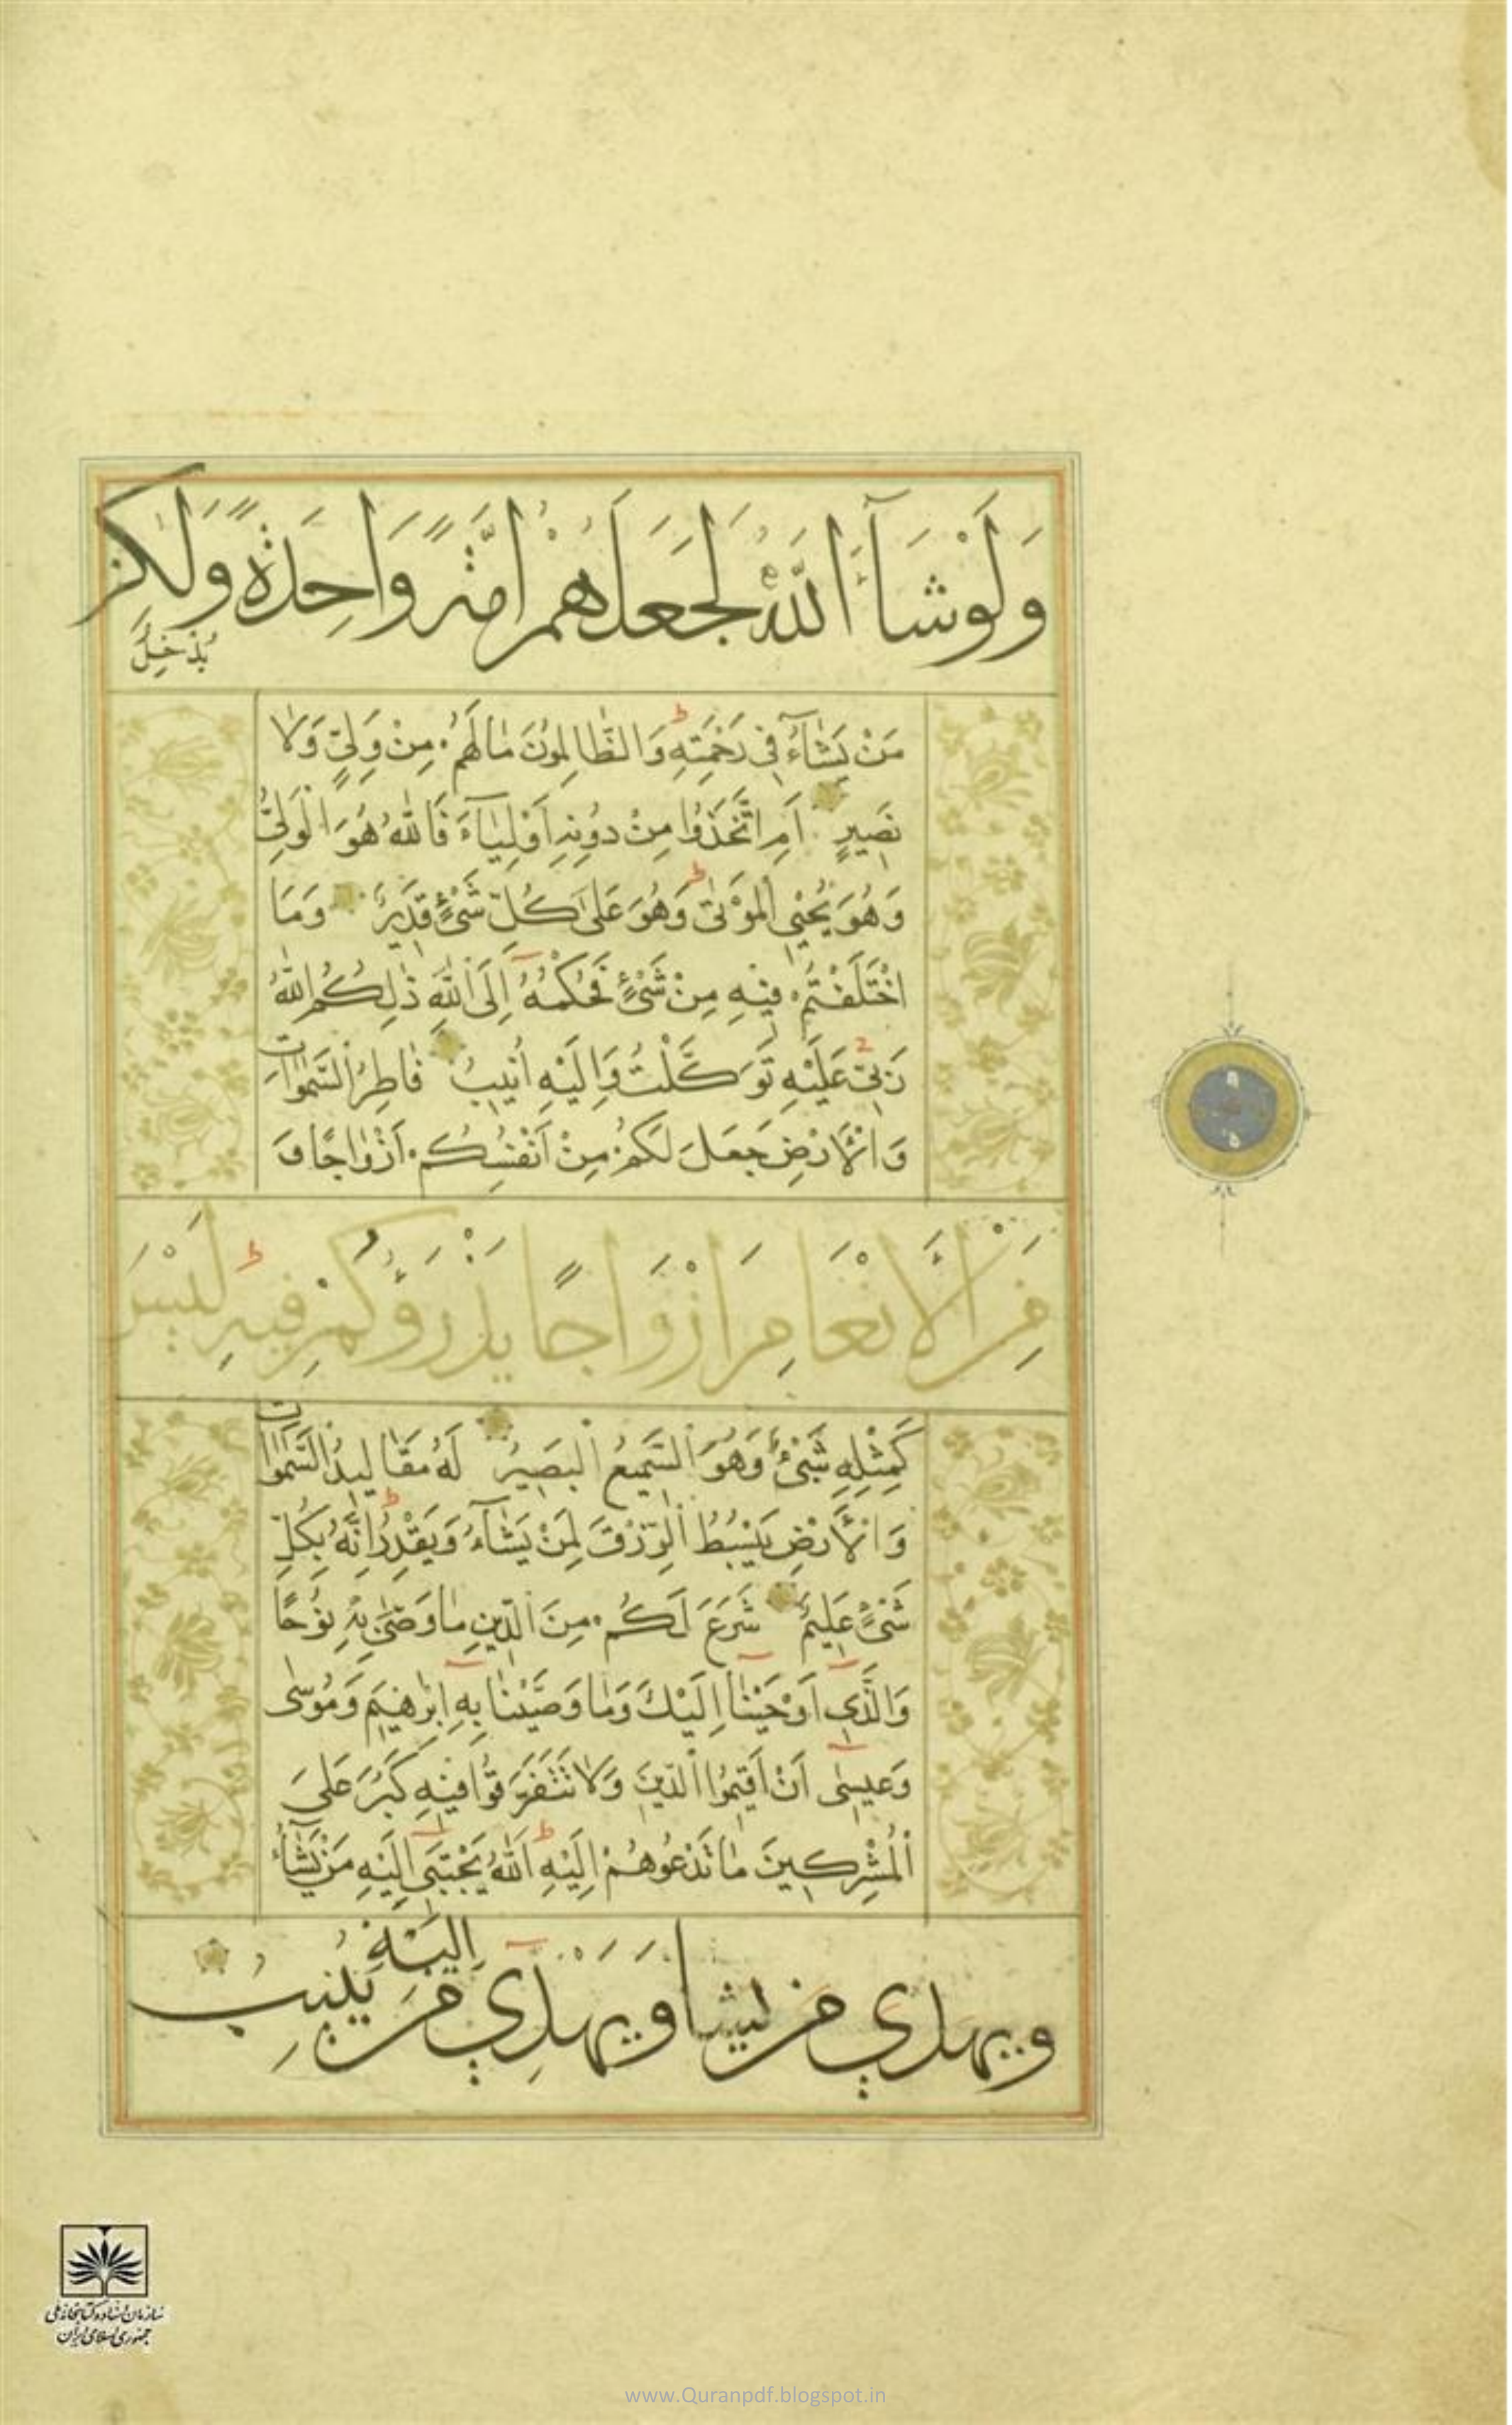 وَلَوْ شَآءَ اللّٰهُ لَجَعَلَهُمْ اُمَّةً وَاحِدَةً وَلٰكِنْ
يُدْخِلُ
مَنْ يَشَآءُ فِي رَحْمَتِهِ ط وَالظَّالِمُونَ مَا لَهُمْ مِنْ وَلِيٍّ وَلَا
نَصِيرٍ اَمِ اتَّخَذُوا مِنْ دُونِهِ اَوْلِيَآءَ فَاللّٰهُ هُوَ الْوَلِيُّ
وَهُوَ يُحْيِي الْمَوْتٰى ط وَهُوَ عَلٰى كُلِّ شَيْءٍ قَدِيرٌ وَمَا
اخْتَلَفْتُمْ فِيهِ مِنْ شَيْءٍ فَحُكْمُهُ اِلَى اللّٰهِ ذٰلِكُمُ اللّٰهُ
رَبِّي عَلَيْهِ تَوَكَّلْتُ وَاِلَيْهِ اُنِيبُ فَاطِرُ السَّمٰوَاتِ
وَالْاَرْضِ جَعَلَ لَكُمْ مِنْ اَنْفُسِكُمْ اَزْوَاجًا وَ
مِنَ الْاَنْعَامِ اَزْوَاجًا يَذْرَؤُكُمْ فِيهِ ط لَيْسَ
كَمِثْلِهِ شَيْءٌ وَهُوَ السَّمِيعُ الْبَصِيرُ لَهُ مَقَالِيدُ السَّمٰوَاتِ
وَالْاَرْضِ يَبْسُطُ الرِّزْقَ لِمَنْ يَشَآءُ وَيَقْدِرُ ط اِنَّهُ بِكُلِّ
شَيْءٍ عَلِيمٌ شَرَعَ لَكُمْ مِنَ الدِّينِ مَا وَصّٰى بِهِ نُوحًا
وَالَّذِي اَوْحَيْنَا اِلَيْكَ وَمَا وَصَّيْنَا بِهِ اِبْرٰهِيمَ وَمُوسٰى
وَعِيسٰى اَنْ اَقِيمُوا الدِّينَ وَلَا تَتَفَرَّقُوا فِيهِ كَبُرَ عَلَى
الْمُشْرِكِينَ مَا تَدْعُوهُمْ اِلَيْهِ ط اَللّٰهُ يَجْتَبِي اِلَيْهِ مَنْ يَشَآءُ
ويهدي من يشا وَيَهْدِي اِلَيْهِ مَنْ يُنِيبُ
سازمان اسناد و کتابخانه ملی
جمهوری اسلامی ایران
www.Quranpdf.blogspot.in